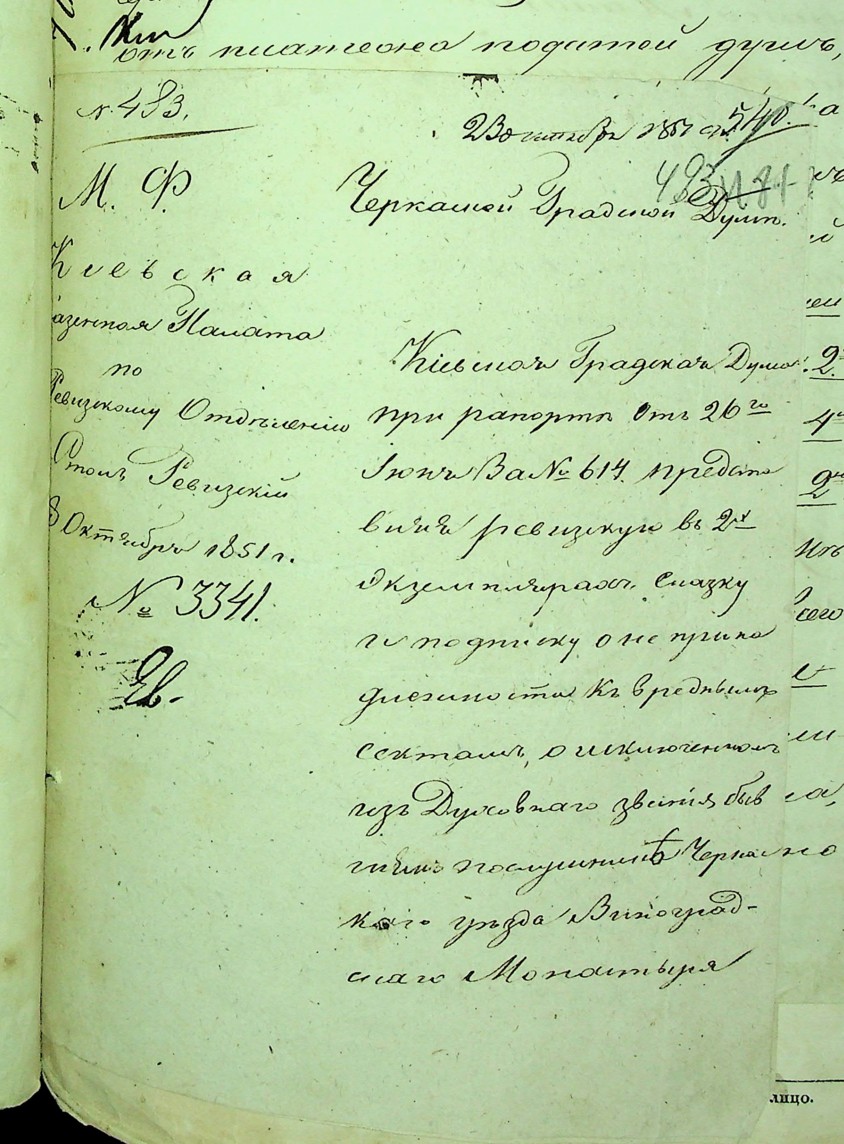 отъ платежа податей душъ,
№ 483.
23 октября 1851 г. 540.
483
М. Ф.
Черкаской Градской Думѣ.
Кіевская
азенная Палата
по
Ревизскому Отдѣленію
Столъ Ревизскій
8 Октября 1851 г.
№ 3341.
Кіевская Градская Дума
при рапортѣ отъ 26го
Іюня за № 614. предста
вила ревизкую въ 2х
экземплярахъ сказку
и подписку о не прина
длежности къ вреднымъ
сектамъ, о исключенномъ
изъ Духовнаго званія быв
шемъ послушникѣ Черкас
каго уѣзда Виноград-
скаго Монастыря
лицо.